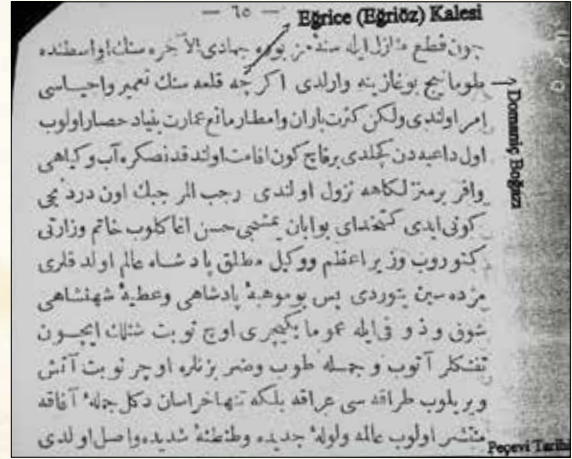 — ٦٥ —
Eğrice (Eğriöz) Kalesi
چون قطع منازل ایله سنهٔ مزبوره جمادی الآخره سنك اواسطنده
طومانیج بوغازینه وارلدی اکرچه قلعه سنك تعمیر واحیاسی
Domaniç Boğazı
امر اولندی ولکن کثرت باران وامطار مانع عمارت بنیاد حصار اولوب
اول داعیه دن کچلدی برقاچ کون اقامت اولندقدنصکره آب وکیاهی
وافر برمنزلکاهه نزول اولندی رجب المرجبك اون دردنجی
کونی ایدی کتخدای بوابان یمشجی حسن اغا کلوب خاتم وزارتی
کتوروب وزیر اعظم ووکیل مطلق پادشاه عالم اولدقلری
مژده سین یتوردی پس بو موهبهٔ پادشاهی وعطیهٔ شهنشاهی
شوق وذوقی ایله عموما یکیچری اوچ نوبت شنلك ایچون
تفنکلر آتوب وجمله طوب وضربزنلره اوچر نوبت آتش
ویریلوب طراقه سی عراقه بلکه تنها خراسان دکل جملهٔ آفاقه
منتشر اولوب عالمه ولولهٔ جدیده وطنطنهٔ شدیده واصل اولدی
Peçevi Tarihi